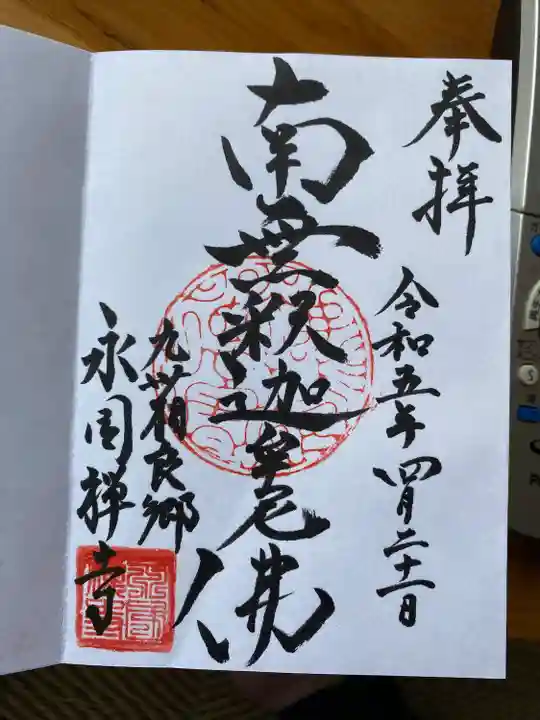 奉拝
令和五年四月二十一日
南無釈迦牟尼佛
九箇相良郷
永国禅寺